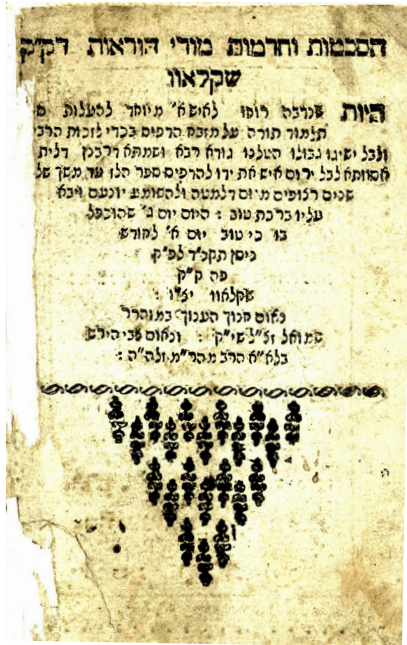 הסכמות וחדמות מורי הוראות דק״ק
שקלאוו
היות שנדבה רוחו לאיש א׳ מיוחד להעלות
תלמוד תורה על מזבח הדפוס בכדי לזכות הרבי
ולבל ישיגו גבולו הטלנו גודא רבא ושמתא דרבנן דלית
אסוותא לבל ירום איש את ידו להדפיס ספר הלז עד משך של
שנים רצופים מיום דלמטה ולהשומע יונעם ויבא
עליו ברכת טוב : היום יום ג׳ שהוכפל
בו כי טוב יום א׳ לחודש
ניסן תקכ״ד לפ״ק
פה ק״ק
שקלאוו יצ״ו :
נאום חנוך העניך במוהרר
שמואל זצ״ל שי״ק : ונאום צבי הירש
בלא״א הרב מהר״מ זלה״ה :